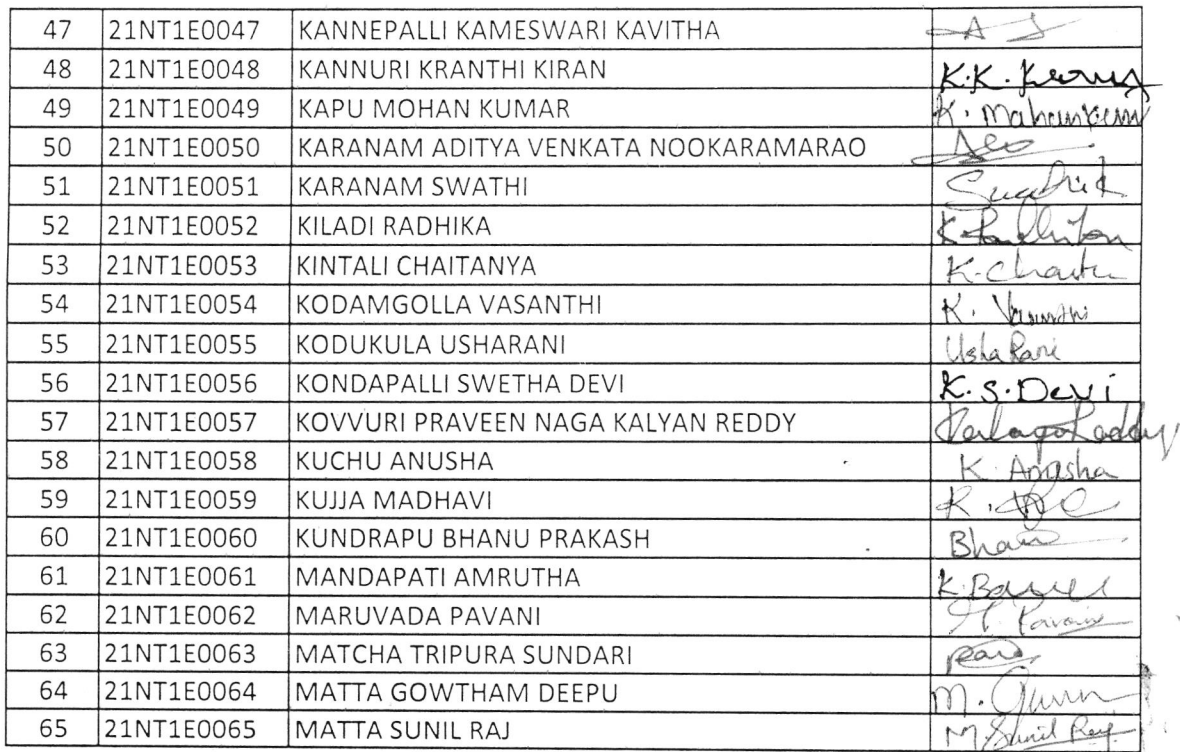 47 21NT1E0047 KANNEPALLI KAMESWARI KAVITHA
48 21NT1E0048 KANNURI KRANTHI KIRAN K.K.
49 21NT1E0049 KAPU MOHAN KUMAR K.
50 21NT1E0050 KARANAM ADITYA VENKATA NOOKARAMARAO
51 21NT1E0051 KARANAM SWATHI
52 21NT1E0052 KILADI RADHIKA
53 21NT1E0053 KINTALI CHAITANYA
54 21NT1E0054 KODAMGOLLA VASANTHI K.
55 21NT1E0055 KODUKULA USHARANI Usha Rani
56 21NT1E0056 KONDAPALLI SWETHA DEVI K.S.Devi
57 21NT1E0057 KOVVURI PRAVEEN NAGA KALYAN REDDY
58 21NT1E0058 KUCHU ANUSHA K. Anusha
59 21NT1E0059 KUJJA MADHAVI
60 21NT1E0060 KUNDRAPU BHANU PRAKASH
61 21NT1E0061 MANDAPATI AMRUTHA
62 21NT1E0062 MARUVADA PAVANI
63 21NT1E0063 MATCHA TRIPURA SUNDARI
64 21NT1E0064 MATTA GOWTHAM DEEPU M.
65 21NT1E0065 MATTA SUNIL RAJ M. Sunil Raj